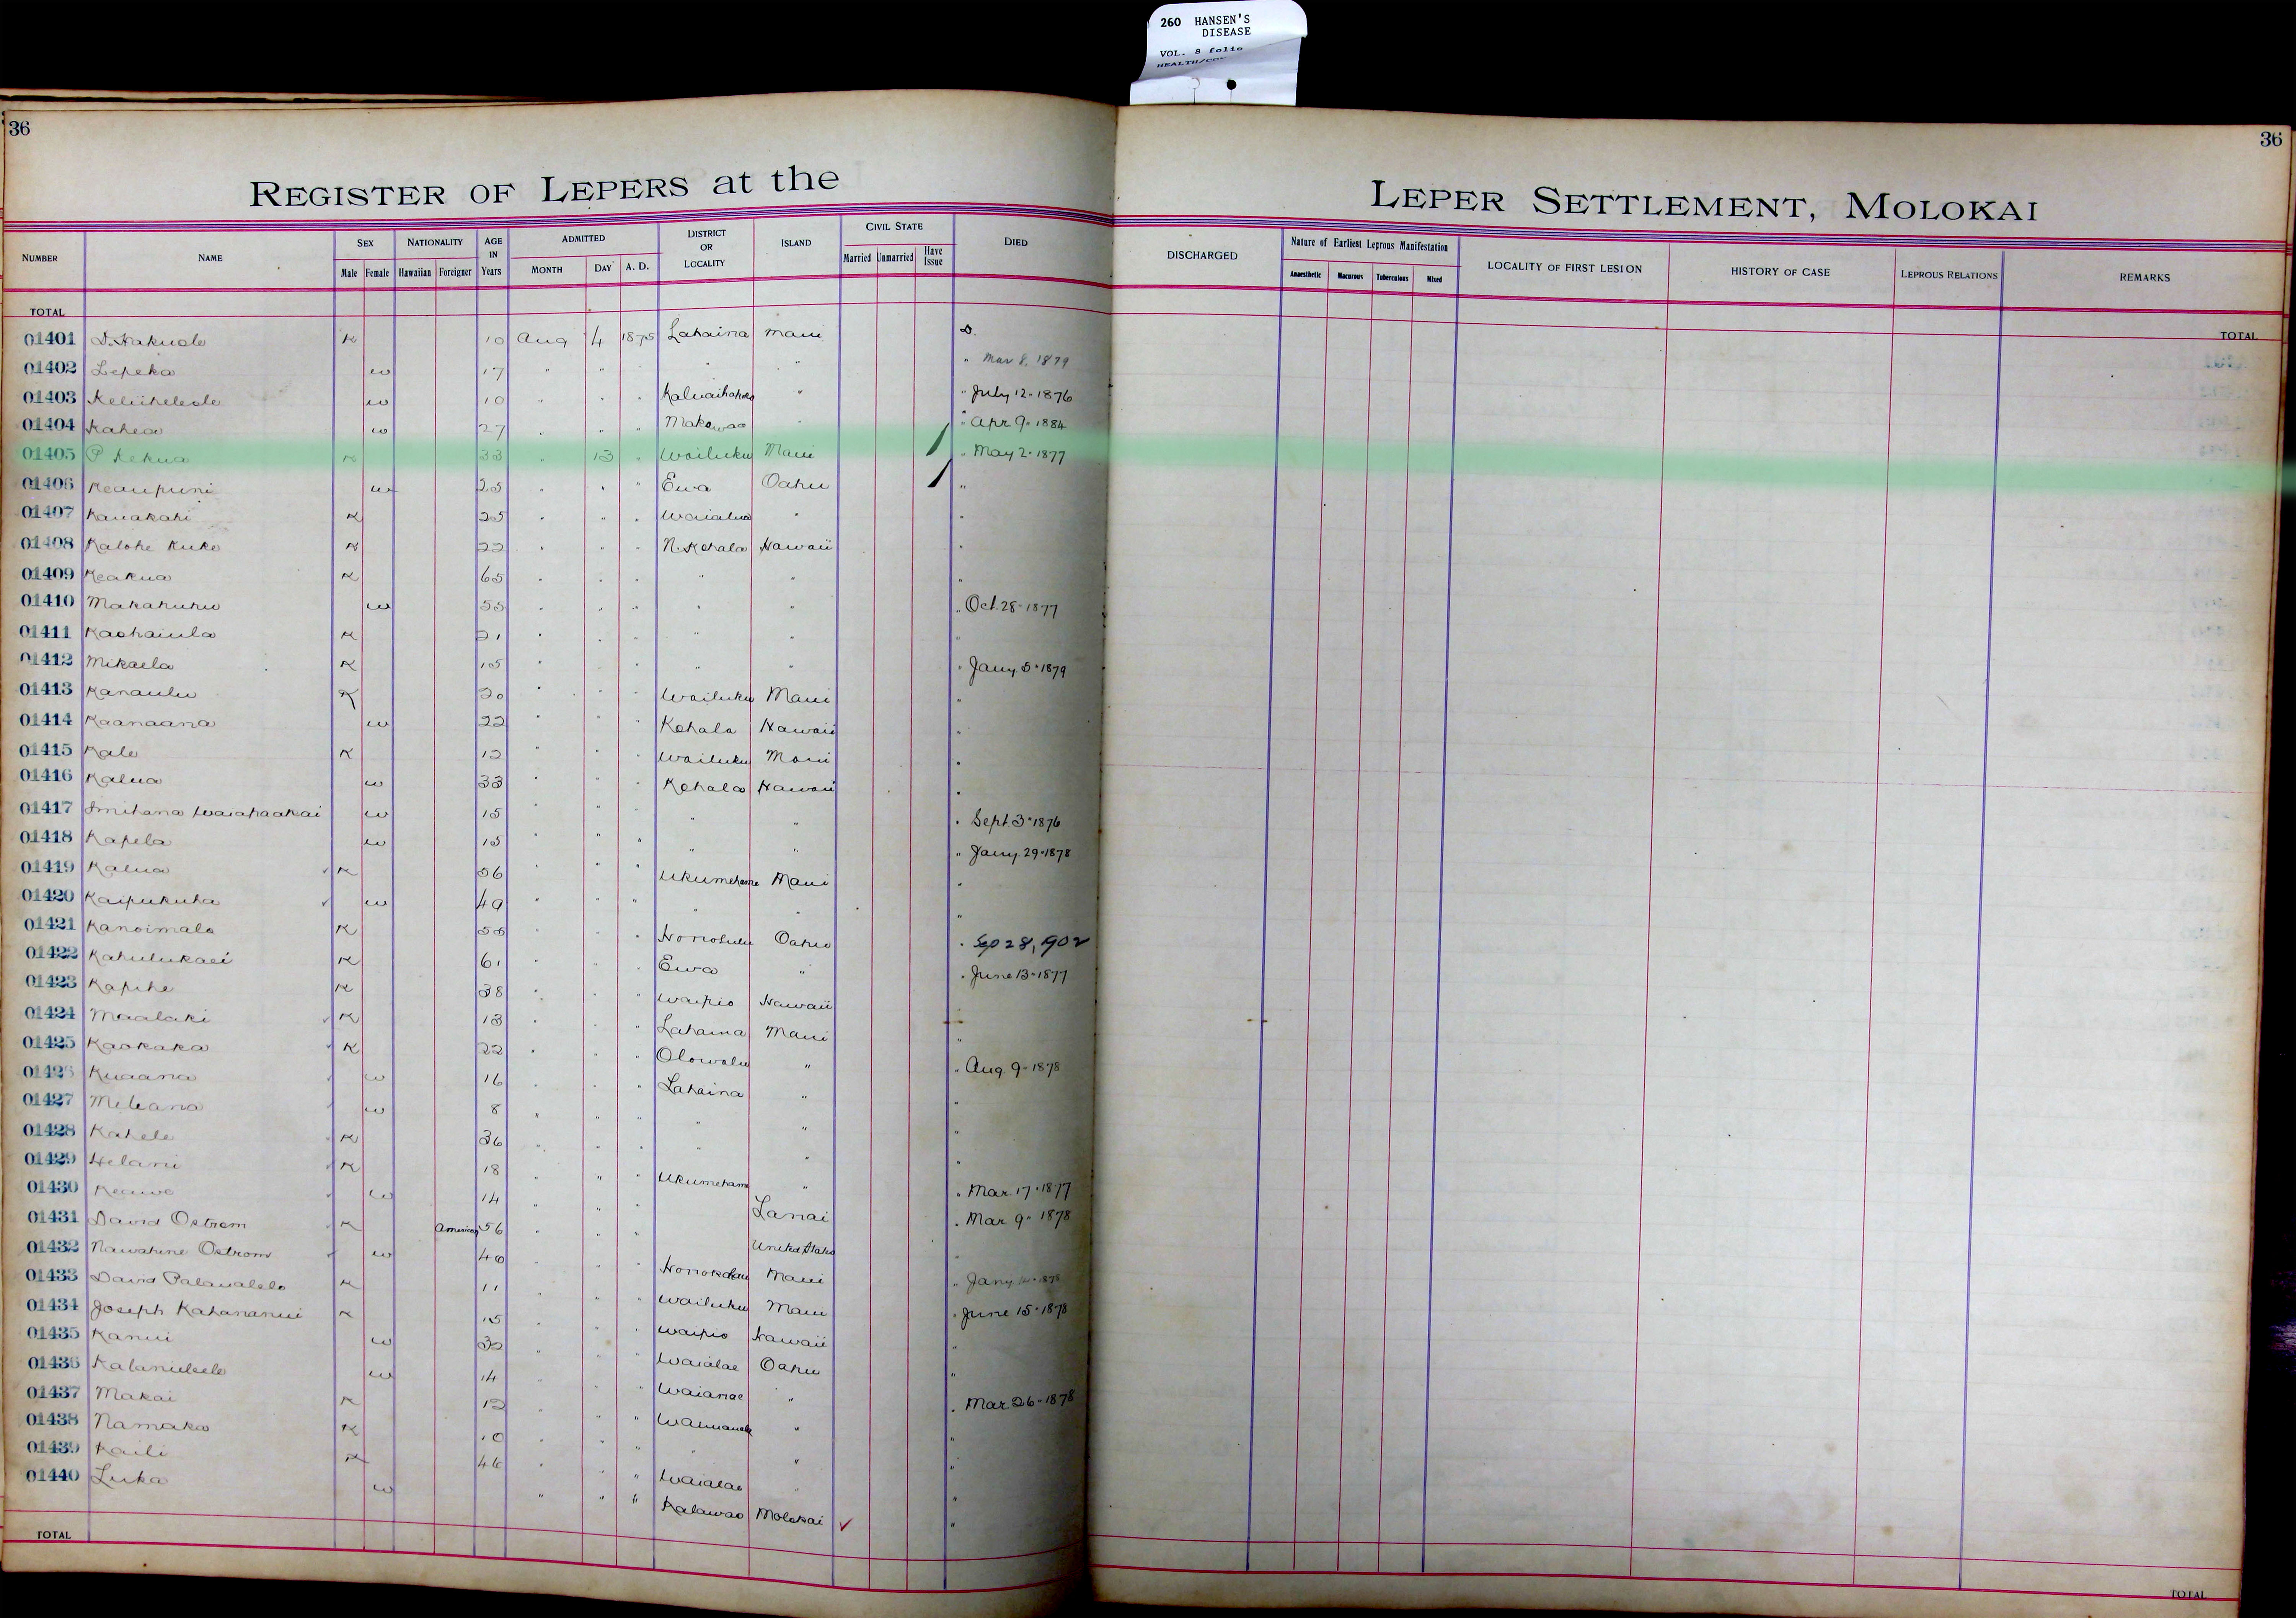 260 HANSEN'S
DISEASE
VOL. 8 folio
36
36
REGISTER OF LEPERS at the LEPER SETTLEMENT, MOLOKAI
NUMBER NAME SEX NATIONALITY AGE IN Years ADMITTED DISTRICT OR LOCALITY ISLAND CIVIL STATE DIED DISCHARGED Nature of Earliest Leprous Manifestation LOCALITY OF FIRST LESION HISTORY OF CASE LEPROUS RELATIONS REMARKS
Male Female Hawaiian Foreigner MONTH DAY A. D. Married Unmarried Have Issue Anaesthetic Macurous Tuberculous Mixed
TOTAL TOTAL
01401 D. Hakuole K 10 Aug 4 1875 Lahaina Maui D.
01402 Lepeka w 17 " " " " " " Mar 8. 1879
01403 Keliihelele w 10 " " " " " July 12 - 1876
01404 Kahea w 27 " " " Makawao " " Apr 9 - 1884
01405 P Kekua K 33 " 13 " Wailuku Maui / " May 2 - 1877
01406 Keaupuni w 25 " " " Ewa Oahu / "
01407 Kauakahi K 25 " " " Waialua " "
01408 Kalohe Kuke K 22 " " " N. Kohala Hawaii "
01409 Keakua K 65 " " " " " "
01410 Makahuhu w 55 " " " " " " Oct. 28 - 1877
01411 Kaohaiula K 21 " " " " " "
01412 Mikaela K 15 " " " " " " Jany. 5 - 1879
01413 Kanaulu K 20 " " " Wailuku Maui "
01414 Kaanaana w 22 " " " Kohala Hawaii "
01415 Kale K 12 " " " Wailuku Maui "
01416 Kalua w 33 " " " Kohala Hawaii "
01417 w 15 " " " " " " Sept. 3 - 1876
01418 Kapela w 15 " " " " " " Jany. 29 - 1878
01419 Kalua K 56 " " " Ukumehame Maui "
01420 Kaipukuha w 49 " " " " " "
01421 Kanoimalo K " " " Honolulu Oahu " Sep 28, 1902
01422 Kahulukaei K 61 " " " Ewa " " June 13 - 1877
01423 Kapihe K 38 " " " Waipio Hawaii
01424 Maalaki K 13 " " " Lahaina Maui "
01425 Kaokaka K 22 " " " Olowalu " " Aug. 9 - 1878
01426 Kuaana w 16 " " " Lahaina " "
01427 Meleana w 8 " " " " " "
01428 Kahele K 36 " " " " " "
01429 Helani K 18 " " " Ukumehame " " Mar. 17 - 1877
01430 Keawe w 14 " " " Lanai " Mar. 9 - 1878
01431 David Ostrom K American 56 " " " United States "
01432 Nawahine Ostrom w 40 " " Honokohau Maui " Jany. 1878
01433 David Palaualelo K 11 " " " Wailuku Maui " June 15 - 1878
01434 Joseph Kahananui K 15 " " " Waipio Hawaii "
01435 Kanui w 32 " " Waialae Oahu "
01436 w 14 " " " Waianae " " Mar. 26 - 1878
01437 Makai K 12 " " " Waimanalo " "
01438 Namaka K 10 " " " " " "
01439 Kaili K 46 " " " Waialae " "
01440 Luka w " " " Kalawao Molokai ✓ "
TOTAL TOTAL